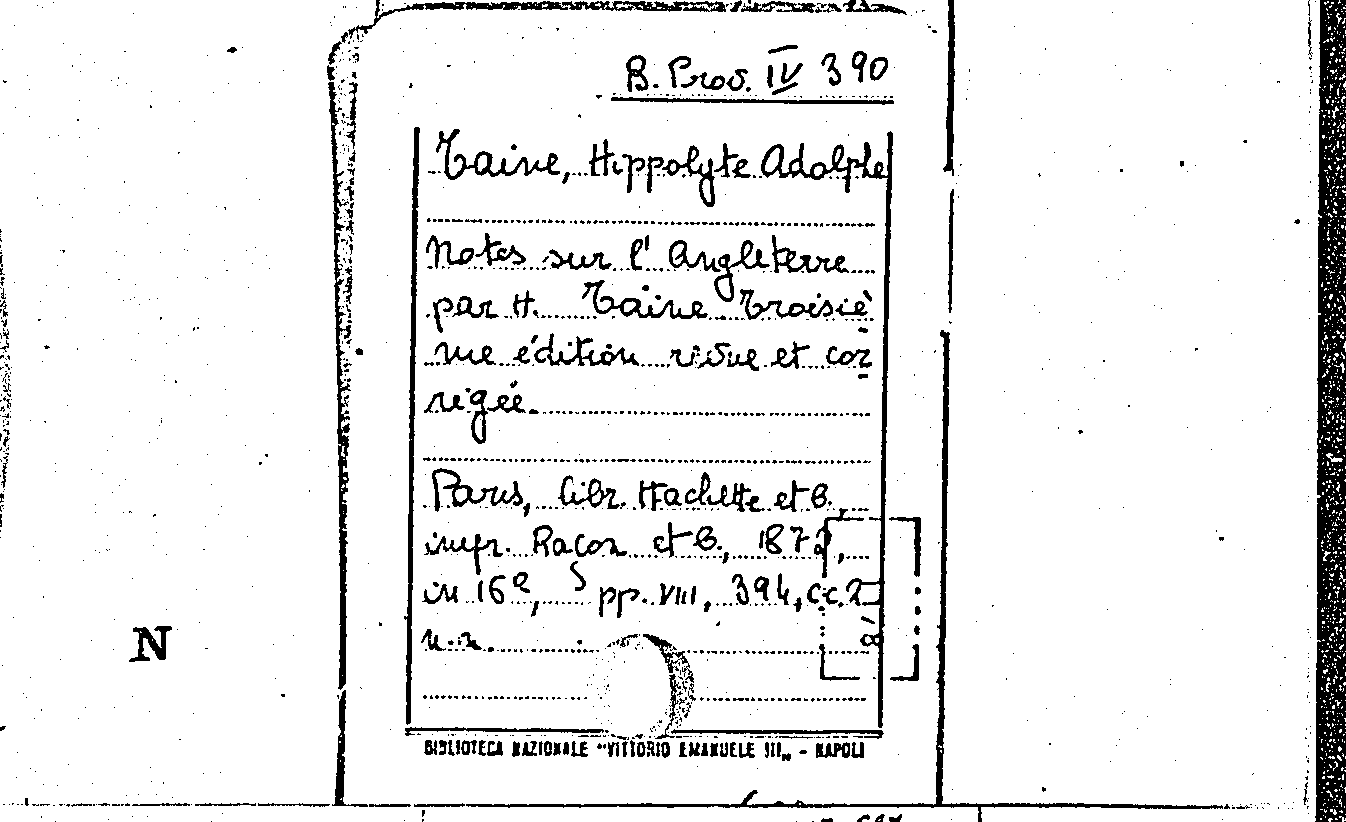 B. Prov. IV 390
Taine, Hippolyte Adolphe
Notes sur l'Angleterre
par H. Taine Troisiè
me édition revue et cor
rigée.
Paris, libr. Hachette et C.,
impr. Raçon et C., 1872,
in 16º, pp. VIII, 394, cc. 2
n.n.
N
BIBLIOTECA NAZIONALE "VITTORIO EMANUELE III„ - NAPOLI